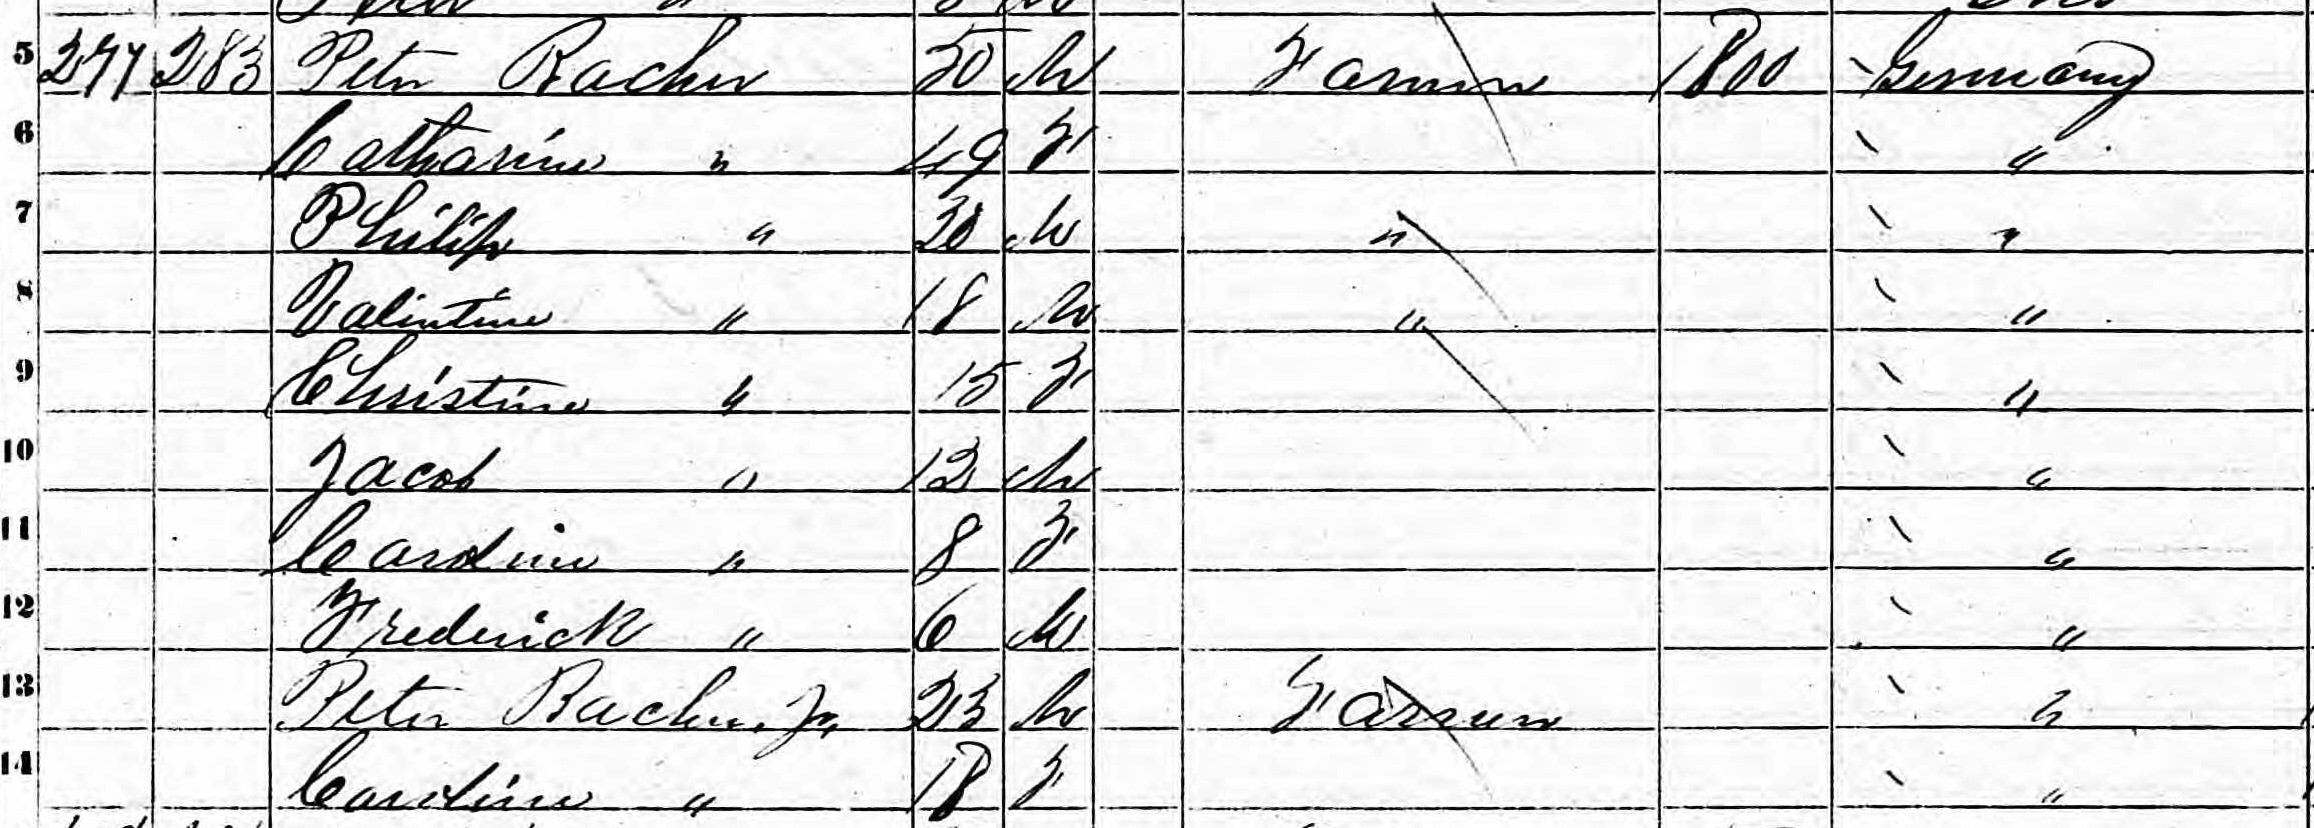 5 277 283 Peter Bacher 50 M Farmer 1800 Germany
6 Catharine " 49 F "
7 Philip " 20 M " "
8 Valintine " 18 M " "
9 Christine " 15 F "
10 Jacob " 13 M "
11 Caroline " 8 F "
12 Frederick " 6 M "
13 Peter Bacher, Jr, 23 M Farmer "
14 Caroline " 18 F "